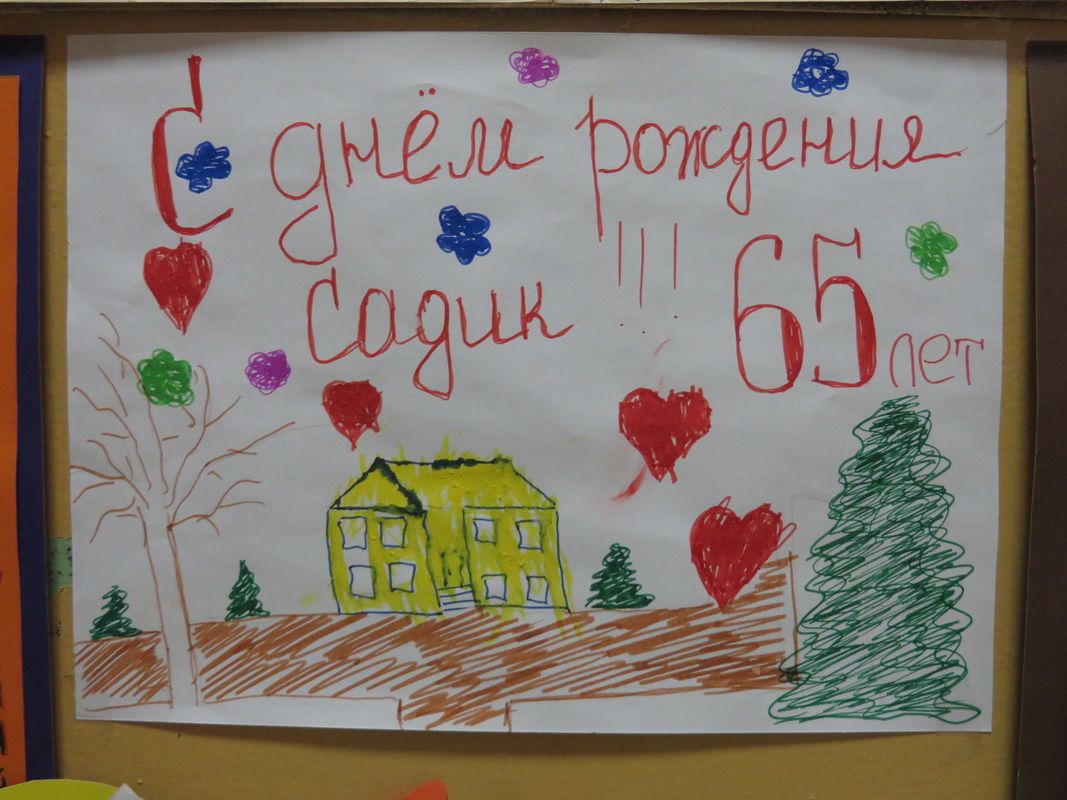 С днём рождения
садик !!! 65 лет